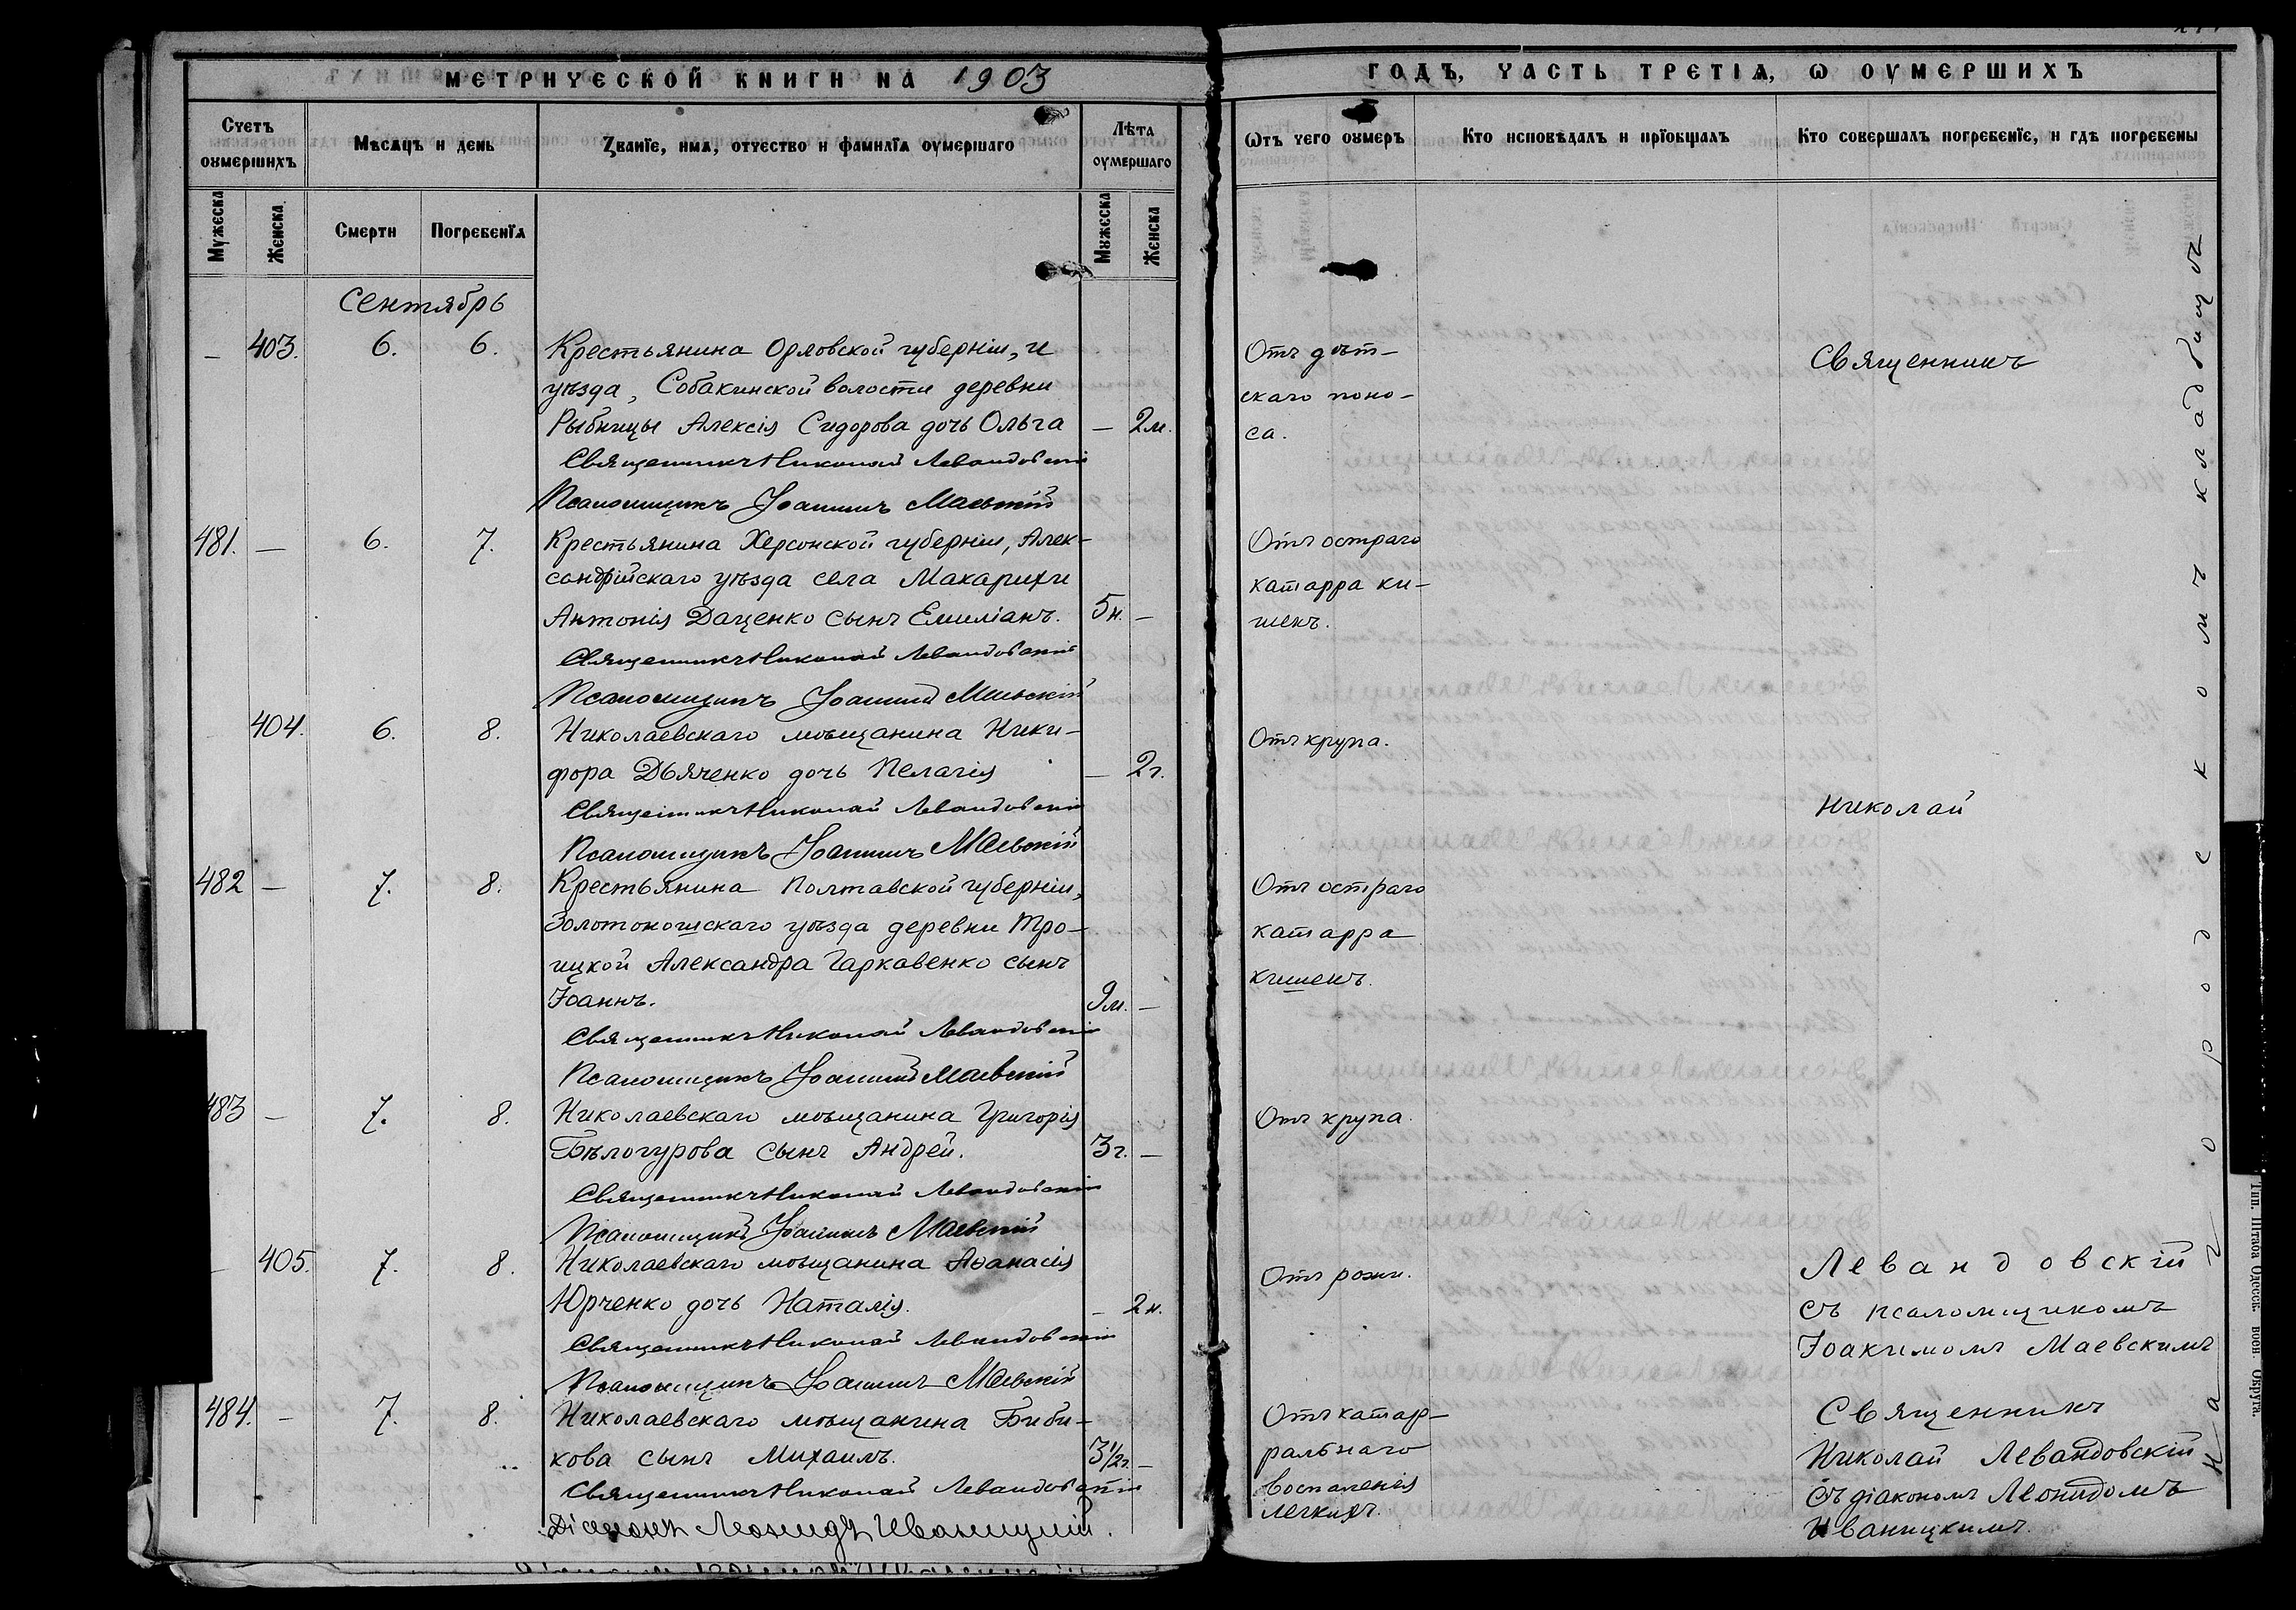 МЕТРИЧЕСКОЙ КНИГИ НА 1903
Счетъ оумершихъ
Мѣсяцъ и день
Званїе, имя, отчество и фамилїя оумершаго
Лѣта оумершаго
Мужеска
Женска
Смерти
Погребенїя
Мужеска
Женска
Сентябрь
403. 6. 6. Крестьянина Орловской губерніи, и
уѣзда, Собакинской волости деревни
Рыбницы Алексія Сидорова дочь Ольга — 2м.
Священникъ Николай Левандовскій
Псаломщикъ Іоакимъ Маевскій
481. — 6. 7. Крестьянина Херсонской губерніи, Алек-
сандрійскаго уѣзда села Макарихи
Антонія Даценко сынъ Емиліанъ. 5н. —
Священникъ Николай Левандовскій
Псаломщикъ Іоакимъ Маевскій
404. 6. 8. Николаевскаго мѣщанина Ники-
фора Дьяченко дочь Пелагія — 2г.
Священникъ Николай Левандовскій
Псаломщикъ Іоакимъ Маевскій
482 — 7. 8. Крестьянина Полтавской губерніи,
Золотоношскаго уѣзда деревни Тро-
ицкой Александра Гаркавенко сынъ
Іоаннъ. 9м. —
Священникъ Николай Левандовскій
Псаломщикъ Іоакимъ Маевскій
483 — 7. 8. Николаевскаго мѣщанина Григорія
Бѣлогурова сынъ Андрей. 3г. —
Священникъ Николай Левандовскій
Псаломщикъ Іоакимъ Маевскій
— 405. 7. 8. Николаевскаго мѣщанина Аѳанасія
Юрченко дочь Наталія. — 2н.
Священникъ Николай Левандовскій
Псаломщикъ Іоакимъ Маевскій
484. — 7. 8. Николаевскаго мѣщанина Биби-
кова сынъ Михаилъ. 3½г. —
Священникъ Николай Левандовскій
Діаконъ Леонидъ Иваницкій.
ГОДЪ, ЧАСТЬ ТРЕТІЯ, Ѡ ОУМЕРШИХЪ
Ѿтъ чего оумеръ
Кто исповѣдалъ и прїобщалъ
Кто совершалъ погребенїе, и гдѣ погребены
Отъ дѣт-
скаго поно-
са.
Отъ остраго
катарра ки-
шекъ.
Отъ крупа.
Отъ остраго
катарра
кишекъ.
Отъ крупа.
Отъ рожи.
Отъ катар-
ральнаго
воспаленія
легкихъ.
Священникъ
Николай
Левандовскій
съ псаломщикомъ
Іоакимомъ Маевскимъ
Священникъ
Николай Левандовскій
съ діакономъ Леонидомъ
Иваницкимъ.
На городскомъ кладбищѣ
Тип. Штаба Одесск. воен. Округа.